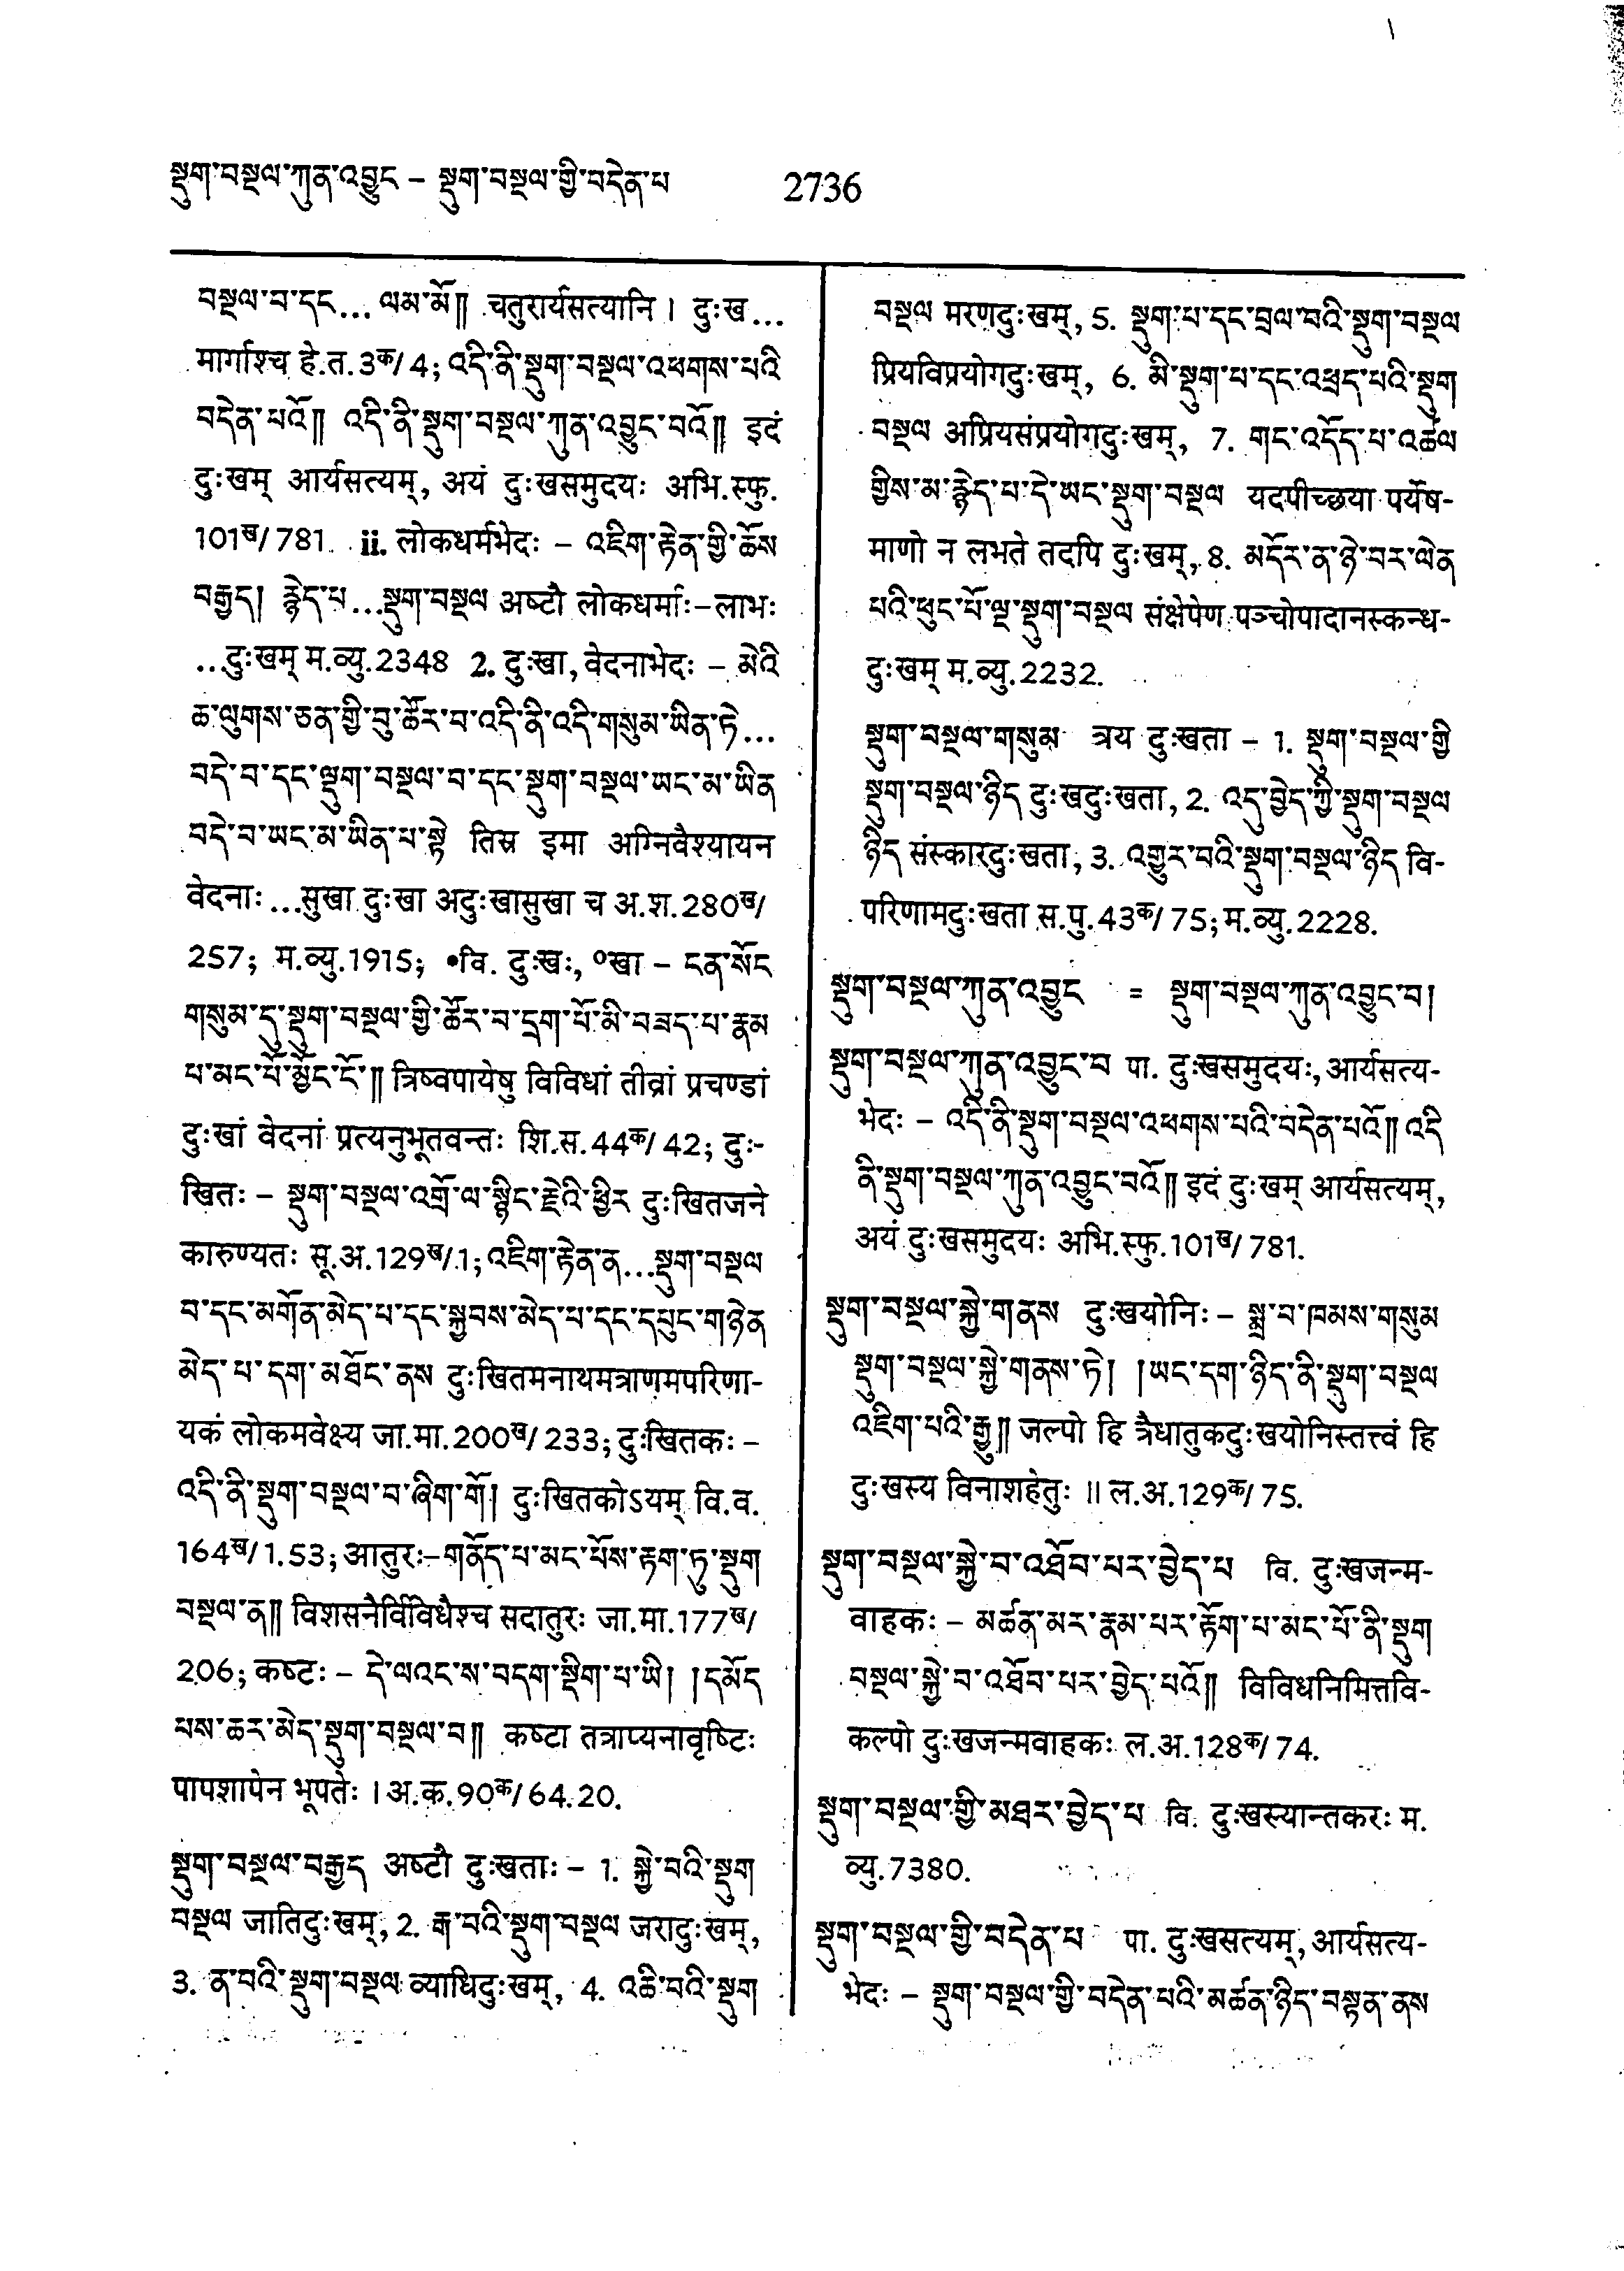 སྡུག་བསྔལ་ཀུན་འབྱུང – སྡུག་བསྔལ་གྱི་བདེན་པ 2736
བསྔལ་བ་དང... ལམ་མོ༎ चतुरार्यसत्यानि । दुःख...
मार्गाश्च हे.त.3क/4; འདི་ནི་སྡུག་བསྔལ་འཕགས་པའི
བདེན་པའོ༎ འདི་ནི་སྡུག་བསྔལ་ཀུན་འབྱུང་བའོ༎ इदं
दुःखम् आर्यसत्यम्, अयं दुःखसमुदयः अभि.स्फु.
101ख/781 ii. लोकधर्मभेदः – འཇིག་རྟེན་གྱི་ཆོས
བརྒྱད། རྙེད་པ...སྡུག་བསྔལ अष्टौ लोकधर्माः–लाभः
...दुःखम् म.व्यु.2348 2. दुःखा, वेदनाभेदः – མེའི
ཆ་ལུགས་ཅན་གྱི་བུ་ཚོར་བ་འདི་ནི་འདི་གསུམ་ཡིན་ཏེ...
བདེ་བ་དང་སྡུག་བསྔལ་བ་དང་སྡུག་བསྔལ་ཡང་མ་ཡིན
བདེ་བ་ཡང་མ་ཡིན་པ་སྟེ तिस्र इमा अग्निवैश्यायन
वेदनाः ...सुखा दुःखा अदुःखासुखा च अ.श.280ख/
257; म.व्यु.1915; •वि. दुःखः, ०खा – ངན་སོང
གསུམ་དུ་སྡུག་བསྔལ་གྱི་ཚོར་བ་དྲག་པོ་མི་བཟད་པ་རྣམ
པ་མང་པོ་མྱོང་ངོ་༎ त्रिष्वपायेषु विविधां तीव्रां प्रचण्डां
दुःखां वेदनां प्रत्यनुभूतवन्तः शि.स.44क/42; दुः-
खितः – སྡུག་བསྔལ་འགྲོ་ལ་སྙིང་རྗེའི་ཕྱིར दुःखितजने
कारुण्यतः सू.अ.129ख/1; འཇིག་རྟེན་ན...སྡུག་བསྔལ
བ་དང་མགོན་མེད་པ་དང་སྐྱབས་མེད་པ་དང་དཔུང་གཉེན
མེད་པ་དག་མཐོང་ནས दुःखितमनाथमत्राणमपरिणा-
यकं लोकमवेक्ष्य जा.मा.200ख/233; दुःखितकः –
འདི་ནི་སྡུག་བསྔལ་བ་ཞིག་གོ། दुःखितकोऽयम् वि.व.
164ख/1.53; आतुरः–གནོད་པ་མང་པོས་རྟག་ཏུ་སྡུག
བསྔལ་ན༎ विशसनैर्विविधैश्च सदातुरः जा.मा.177ख/
206; कष्टः – དེ་ལའང་ས་བདག་སྡིག་པ་ཡི། །དམོད
པས་ཆར་མེད་སྡུག་བསྔལ་བ༎ कष्टा तत्राप्यनावृष्टिः
पापशापेन भूपतेः । अ.क.90क/64.20.
སྡུག་བསྔལ་བརྒྱད अष्टौ दुःखताः – 1. སྐྱེ་བའི་སྡུག
བསྔལ जातिदुःखम्, 2. རྒ་བའི་སྡུག་བསྔལ जरादुःखम्,
3. ན་བའི་སྡུག་བསྔལ व्याधिदुःखम्, 4. འཆི་བའི་སྡུག
བསྔལ मरणदुःखम्, 5. སྡུག་པ་དང་བྲལ་བའི་སྡུག་བསྔལ
प्रियविप्रयोगदुःखम्, 6. མི་སྡུག་པ་དང་འཕྲད་པའི་སྡུག
བསྔལ अप्रियसंप्रयोगदुःखम्, 7. གང་འདོད་པ་འཚལ
གྱིས་མ་རྙེད་པ་དེ་ཡང་སྡུག་བསྔལ यदपीच्छया पर्येष-
माणो न लभते तदपि दुःखम्, 8. མདོར་ན་ཉེ་བར་ལེན
པའི་ཕུང་པོ་ལྔ་སྡུག་བསྔལ संक्षेपेण पञ्चोपादानस्कन्ध-
दुःखम् म.व्यु.2232.
སྡུག་བསྔལ་གསུམ त्रय दुःखता – 1. སྡུག་བསྔལ་གྱི
སྡུག་བསྔལ་ཉིད दुःखदुःखता, 2. འདུ་བྱེད་ཀྱི་སྡུག་བསྔལ
ཉིད संस्कारदुःखता, 3. འགྱུར་བའི་སྡུག་བསྔལ་ཉིད वि-
परिणामदुःखता स.पु.43क/75; म.व्यु.2228.
སྡུག་བསྔལ་ཀུན་འབྱུང = སྡུག་བསྔལ་ཀུན་འབྱུང་བ།
སྡུག་བསྔལ་ཀུན་འབྱུང་བ पा. दुःखसमुदयः, आर्यसत्य-
भेदः – འདི་ནི་སྡུག་བསྔལ་འཕགས་པའི་བདེན་པའོ༎ འདི
ནི་སྡུག་བསྔལ་ཀུན་འབྱུང་བའོ༎ इदं दुःखम् आर्यसत्यम्,
अयं दुःखसमुदयः अभि.स्फु.101ख/781.
སྡུག་བསྔལ་སྐྱེ་གནས दुःखयोनिः – སྨྲ་བ་ཁམས་གསུམ
སྡུག་བསྔལ་སྐྱེ་གནས་ཏེ། །ཡང་དག་ཉིད་ནི་སྡུག་བསྔལ
འཇིག་པའི་རྒྱུ༎ जल्पो हि त्रैधातुकदुःखयोनिस्तत्त्वं हि
दुःखस्य विनाशहेतुः ॥ ल.अ.129क/75.
སྡུག་བསྔལ་སྐྱེ་བ་འཐོབ་པར་བྱེད་པ वि. दुःखजन्म-
वाहकः – མཚན་མར་རྣམ་པར་རྟོག་པ་མང་པོ་ནི་སྡུག
བསྔལ་སྐྱེ་བ་འཐོབ་པར་བྱེད་པའོ༎ विविधनिमित्तवि-
कल्पो दुःखजन्मवाहकः ल.अ.128क/74.
སྡུག་བསྔལ་གྱི་མཐར་བྱེད་པ वि. दुःखस्यान्तकरः म.
व्यु.7380.
སྡུག་བསྔལ་གྱི་བདེན་པ पा. दुःखसत्यम्, आर्यसत्य-
भेदः – སྡུག་བསྔལ་གྱི་བདེན་པའི་མཚན་ཉིད་བསྟན་ནས